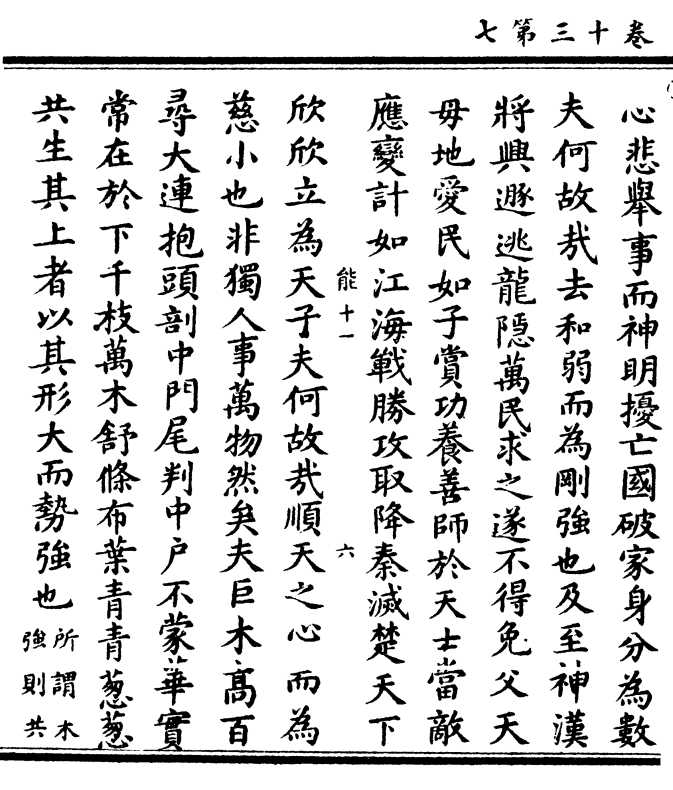 卷十三第七
心悲舉事而神明擾亡國破家身分為數
夫何故㢤去和弱而為剛強也及至神漢
將興遯逃龍隱萬民求之遂不得免父天
毋地愛民如子賞功養善師於天士當敵
應變計如江海戰勝攻取降秦滅楚天下
能十一 六
欣欣立為天子夫何故㢤順天之心而為
慈小也非獨人事萬物然矣夫巨木高百
尋大連抱頭剖中門尾判中户不蒙華實
常在於下千枝萬木舒條布葉青青葱葱
共生其上者以其形大而勢強也
所謂木
強則共